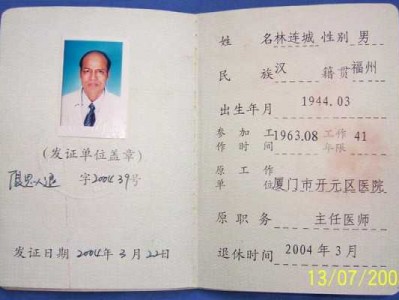 (发证单位盖章)
厦思人退 字200439号
发证日期 2004年3月22日
姓 名 林连城 性别 男
民 族 汉 籍贯 福州
出生年月 1944.03
参加工作时间 1963.08 工作年限 41
原工作单位 厦门市开元区医院
原职务 主任医师
退休时间 2004年3月
13/07/200